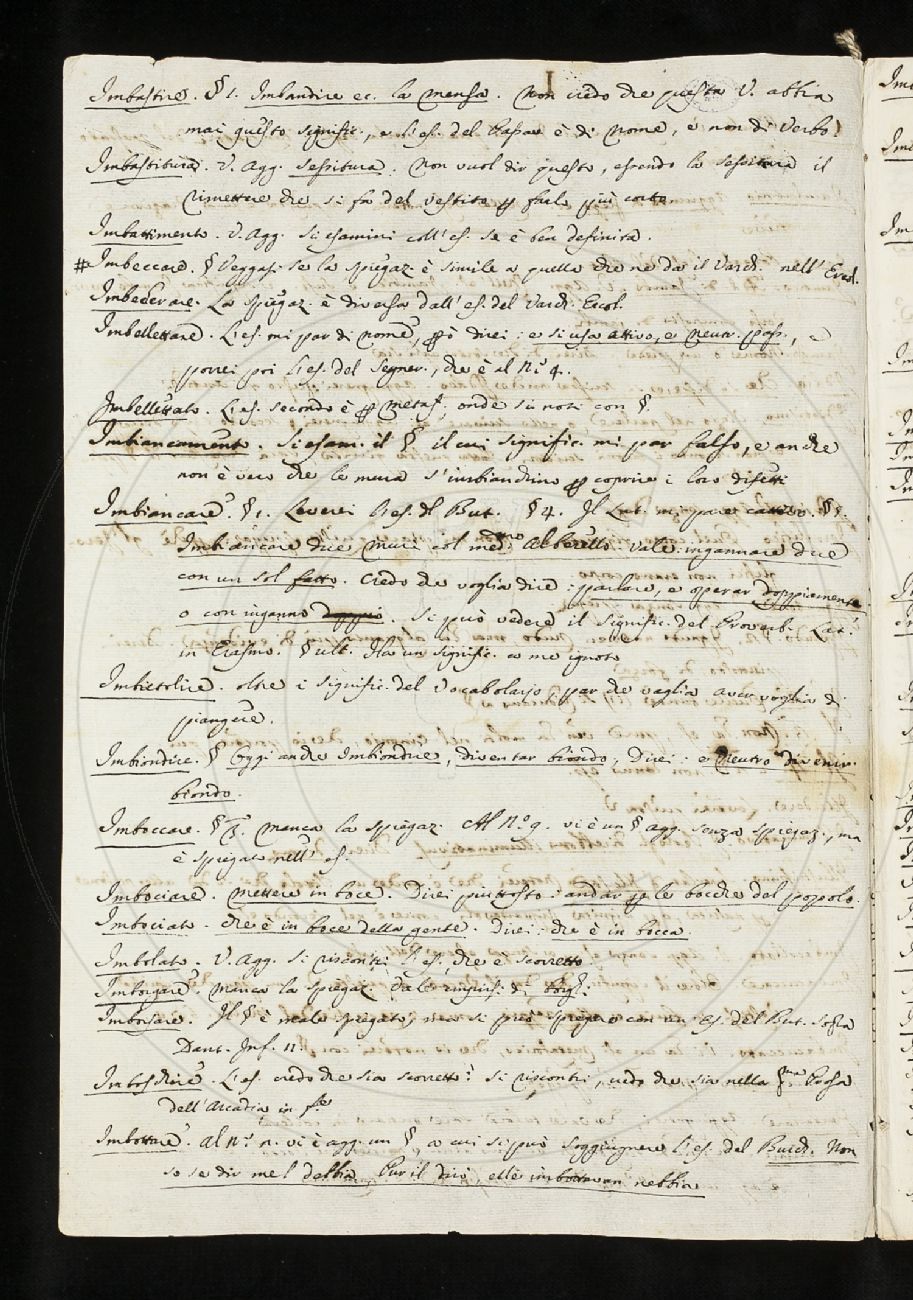 I
Imbastire. § 1. Imbandire ec. la mensa. Non credo che questa V. abbia
mai questo signific., e l'es. del Casa è di nome, e non di verbo.
Imbastitura. V. Agg. Sessitura. Non vuol dir questo, essendo la sessitura il
rimettere che si fa del vestito p farlo più corto.
Imbattimento. V. Agg. Si esamini coll'es. se è ben definita.
# Imbeccare. § Veggasi se la spiegaz. è simile a quella che ne da il Varch. nell'Ercol.
Imbecherare. La spiegaz. è diversa dall'es. del Varch. Ercol.
Imbellettare. L'es. mi par di nome, p ò direi: e si usa attivo, e neutr. pass., e
porrei poi l'es. del Segner., che è al N.º 4.
Imbellettato. L'es. secondo è p metaf., onde si noti con §.
Imbiancamento. Si esam. il § il cui signific. mi par falso, e anche
non è vero che le mura s'imbianchino p coprire i loro difetti.
Imbiancare. § 1. Leverei l'es. del But. § 4. Il Lat. mi pare cattivo. § 5.
Imbiancare due muri col med.mo alberello: vale ingannare due
con un sol fatto. Credo che voglia dire: parlare, e operar doppiamente
o con inganno doppio. Si può vedere il signific. del Proverb. Lat.
in Erasmo. § ult. Ha un signific. a me ignoto.
Imbietolire. oltre i signific. del Vocabolario, par che vaglia aver voglia di
piangere.
Imbiondire. § Oggi anche Imbiondire, diventar biondo, Direi: e Neutro divenir
biondo.
Imboccare. § manca la spiegaz. Al N.º 9. vi è un § agg. senza spiegaz., ma
è spiegato nell'es.
Imbociare. mettere in boce. Direi piuttosto: andar p le bocche del popolo.
Imbociato. che è in boce della gente. Direi: che è in bocca.
Imbolato. V. Agg. Si riscontri l'es. che è scorretto.
Imborgare. Manca la spiegaz.
Imborsare. Il § è male spiegato, ma si può spiegare con un es. del But. sopra
Dant. Inf. 11.
Imboschire. L'es. credo che sia scorretto. Si riscontri, credo che sia nella p.ma Prosa
dell'Arcadia in f.e
Imbottare. al N.º n. vi è agg. un § a cui si può soggiugnere l'es. del Burch. Non
so se dir me l debbia, Pur il dirò, elle imbottavan nebbia